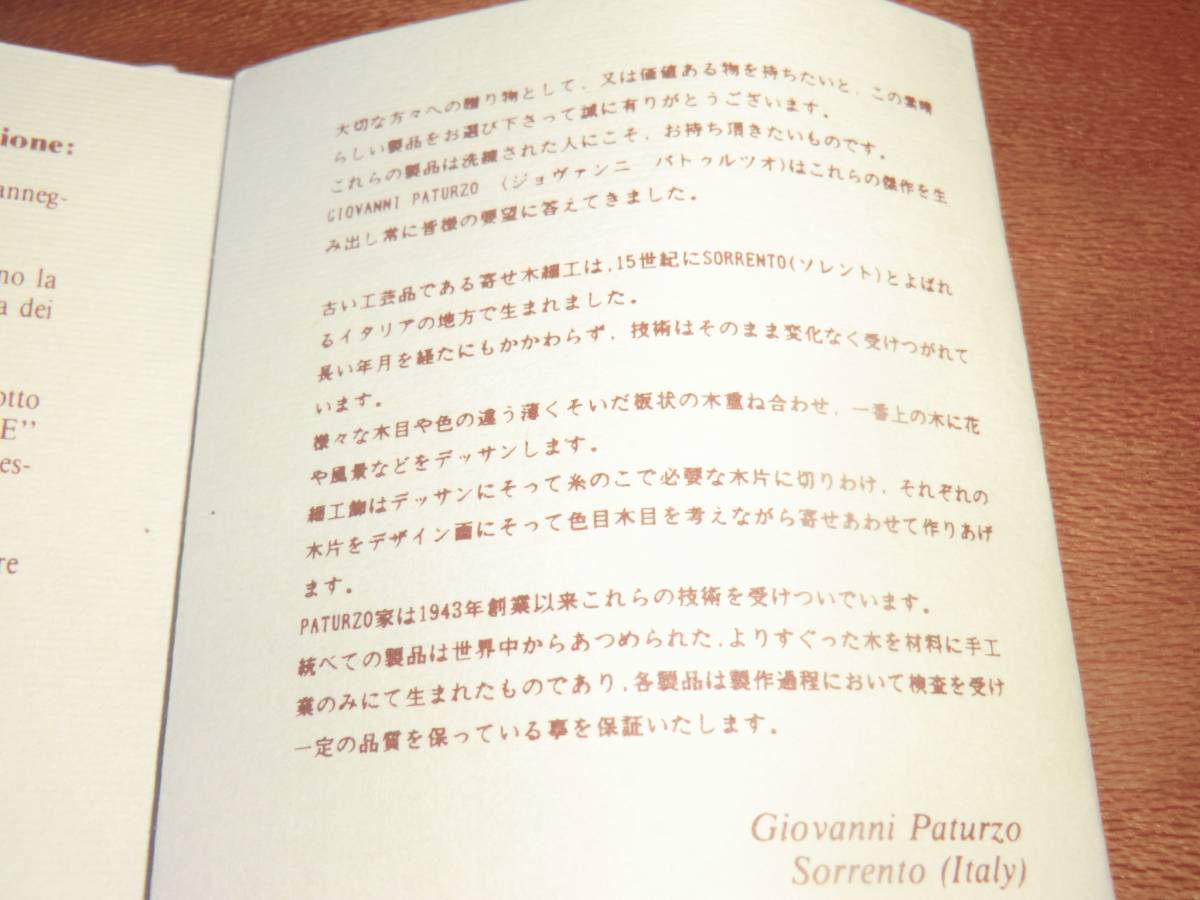 ione:
anneg-
no la
a dei
otto
E”
es-
re
大切な方々への贈り物として，又は価値ある物を持ちたいと，この素晴
らしい製品をお選び下さって誠に有りがとうございます。
これらの製品は洗練された人にこそ，お持ち頂きたいものです。
GIOVANNI PATURZO （ジョヴァンニ パトゥルツオ)はこれらの傑作を生
み出し常に皆様の要望に答えてきました。
古い工芸品である寄せ木細工は,15世紀にSORRENTO(ソレント)とよばれ
るイタリアの地方で生まれました。
長い年月を経たにもかかわらず，技術はそのまま変化なく受けつがれて
います。
様々な木目や色の違う薄くそいだ板状の木重ね合わせ，一番上の木に花
や風景などをデッサンします。
細工飾はデッサンにそって糸のこで必要な木片に切りわけ，それぞれの
木片をデザイン画にそって色目木目を考えながら寄せあわせて作りあげ
ます。
PATURZO家は1943年創業以来これらの技術を受けついでいます。
統べての製品は世界中からあつめられた,よりすぐった木を材料に手工
業のみにて生まれたものであり,各製品は製作過程において検査を受け
一定の品質を保っている事を保証いたします。
Giovanni Paturzo
Sorrento (Italy)